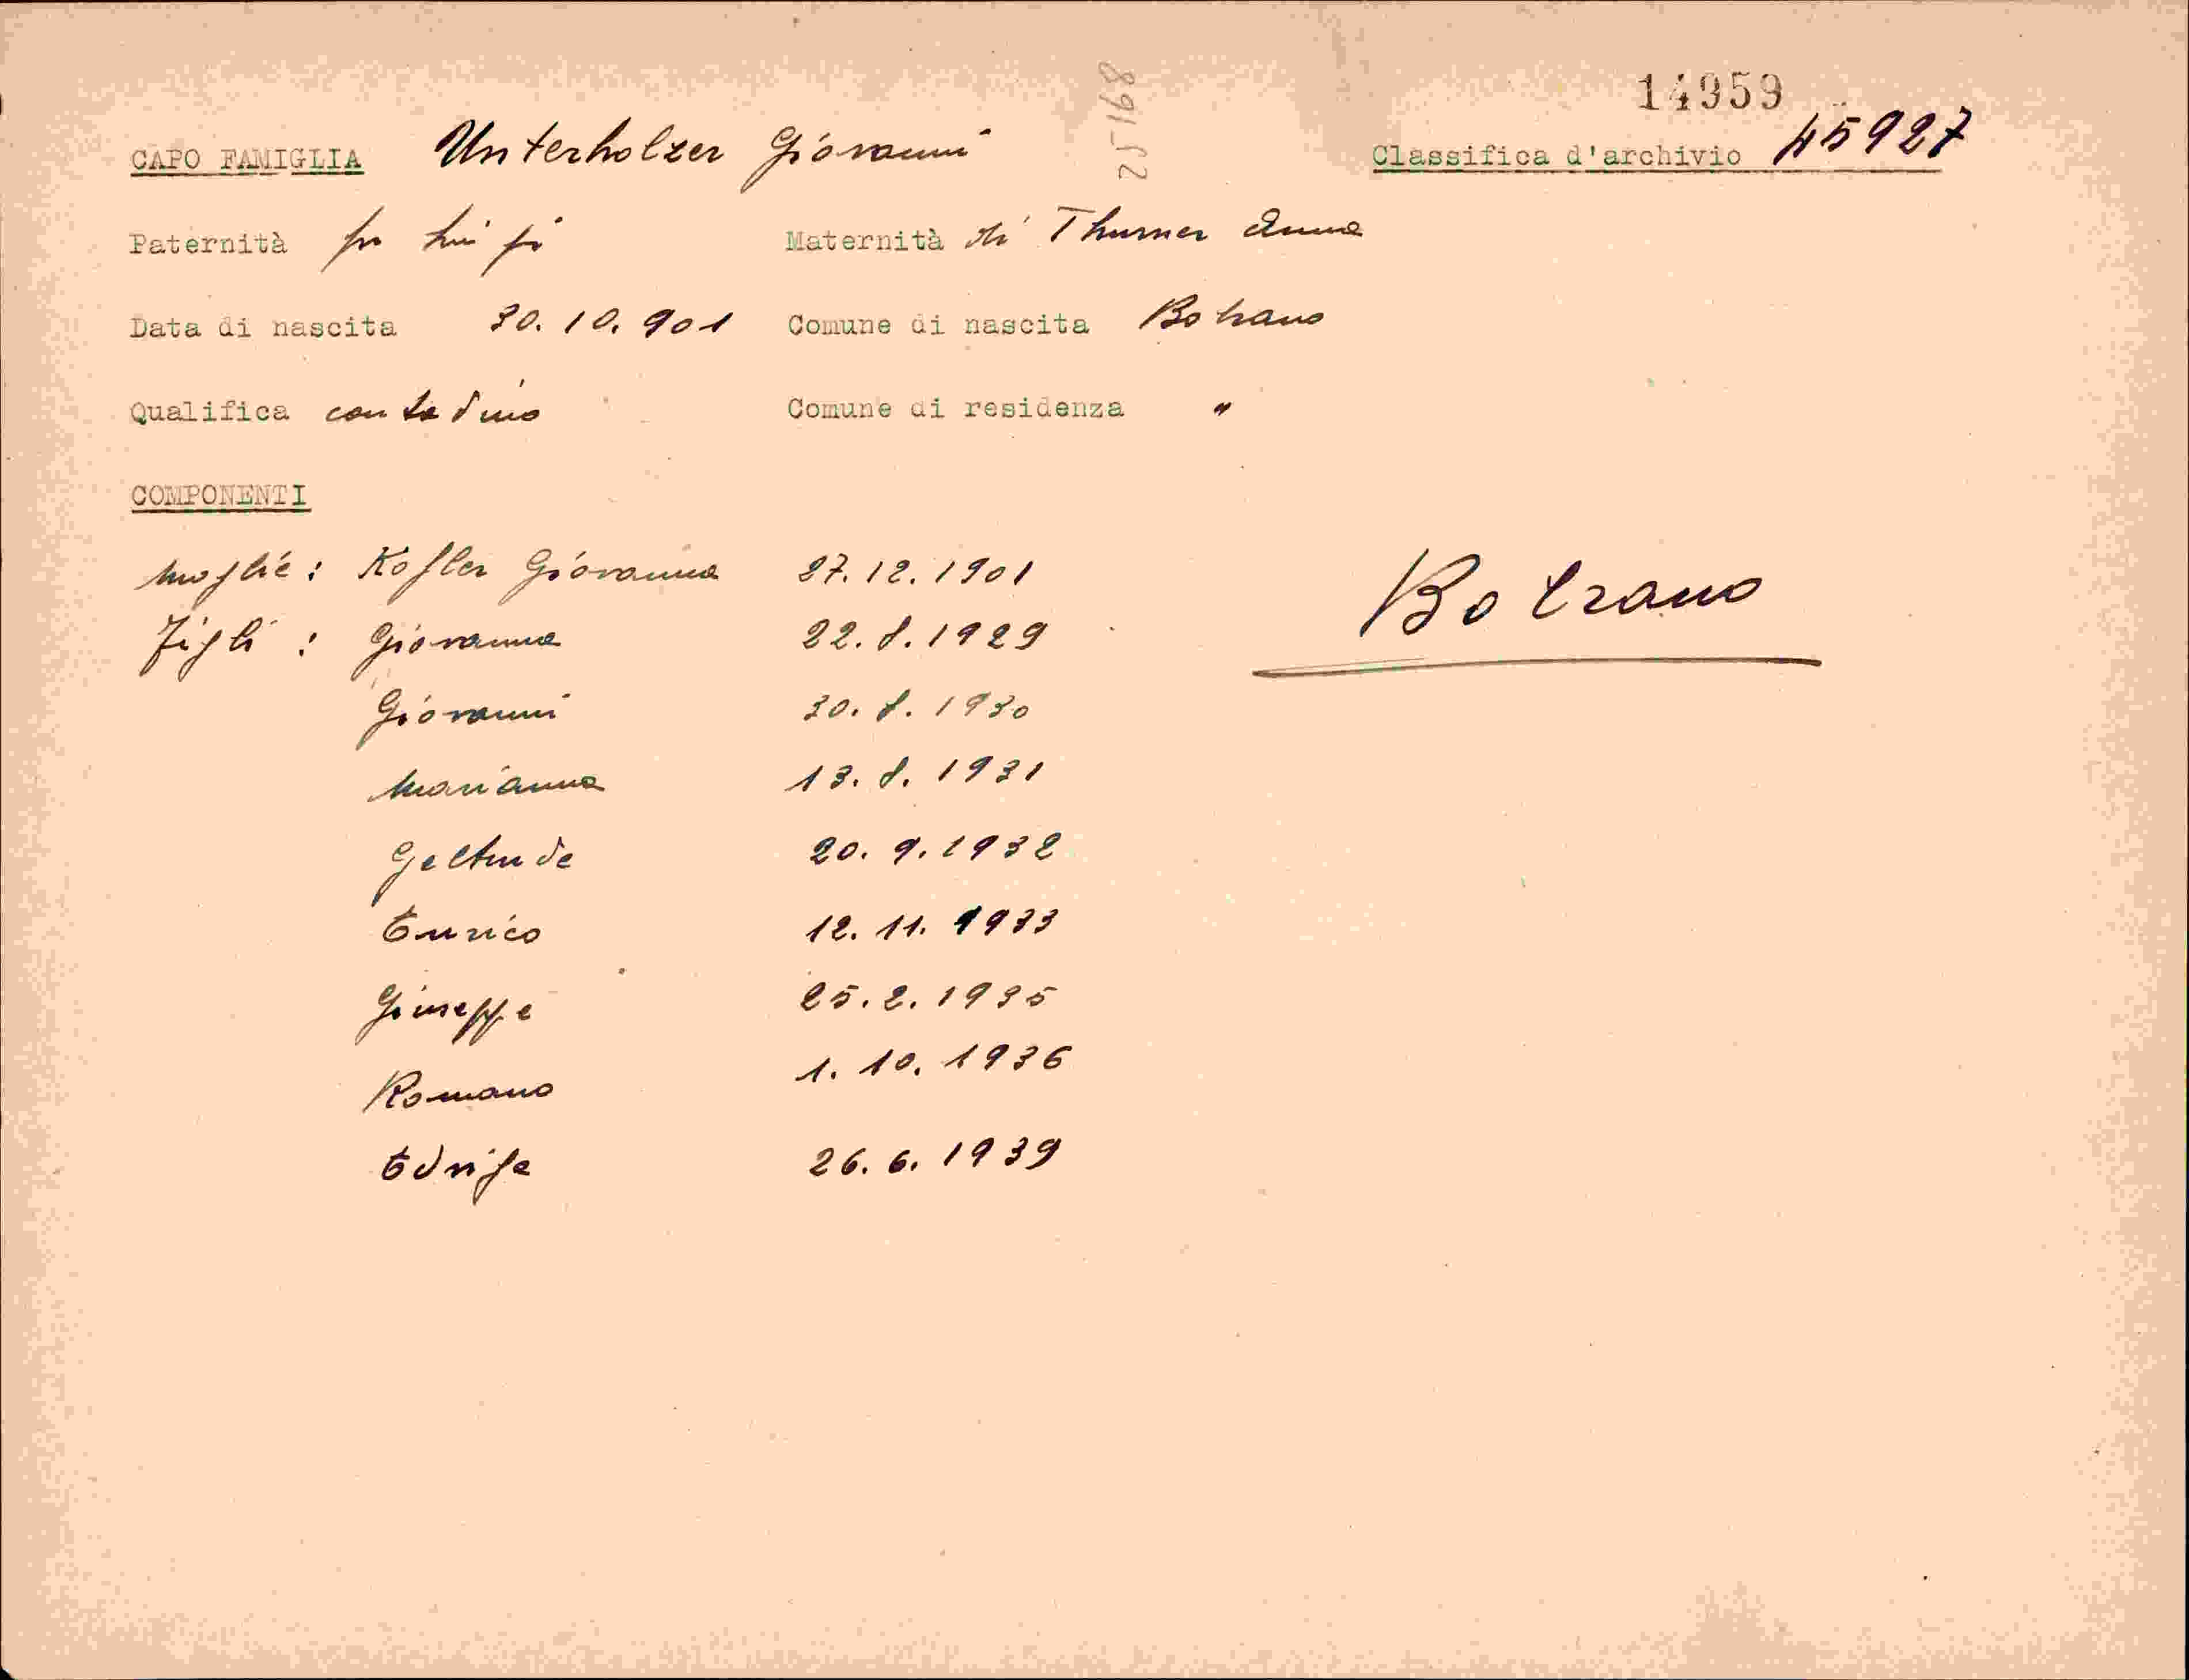 14959
25168
CAPO FAMIGLIA Unterholzer Giovanni
Classifica d'archivio 45927
Paternità fu Luigi Maternità di Thurner Anna
Data di nascita 30.10.901 Comune di nascita Bolzano
Qualifica contadino Comune di residenza "
COMPONENTI
Moglie: Kofler Giovanna 27.12.1901
Bolzano
Figli: Giovanna 22.8.1929
Giovanni 30.8.1930
Marianna 13.8.1931
Geltrude 20.9.1932
Enrico 12.11.1933
Giuseppe 25.2.1935
Romano 1.10.1936
Edvige 26.6.1939